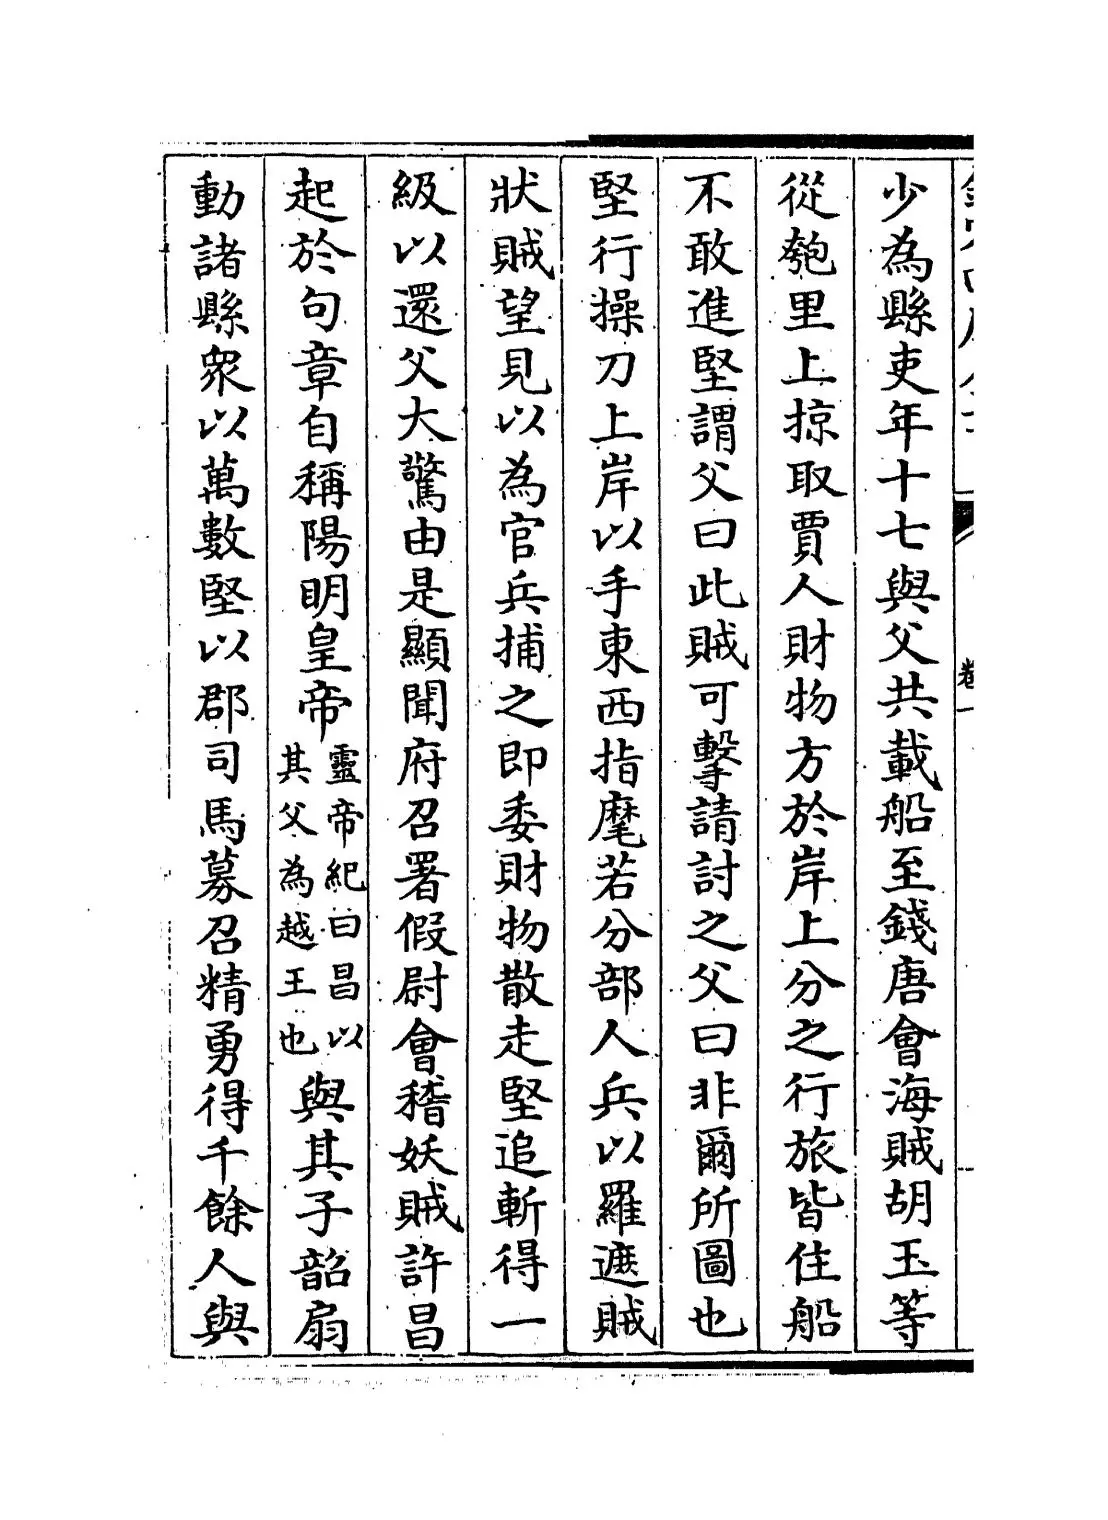 少為縣吏年十七與父共載船至錢唐會海賊胡玉等
從匏里上掠取賈人財物方於岸上分之行旅皆住船
不敢進堅謂父曰此賊可擊請討之父曰非爾所圖也
堅行操刀上岸以手東西指麾若分部人兵以羅遮賊
狀賊望見以為官兵捕之即委財物散走堅追斬得一
級以還父大驚由是顯聞府召署假尉會稽妖賊許昌
起於句章自稱陽明皇帝
靈帝紀曰昌以
其父為越王也
與其子韶扇
動諸縣衆以萬數堅以郡司馬募召精勇得千餘人與